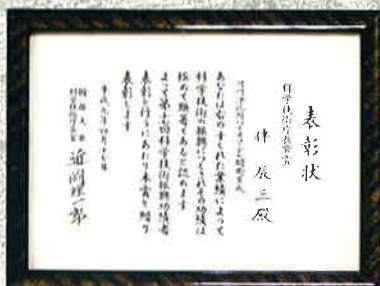 表彰状
科学技術庁長官賞
伴 辰三 殿
あなたは右のすぐれた業績によって
科学技術の振興につくされその功績は
極めて顕著であると認めます
よって第十回科学技術振興功績者
表彰を行うにあたり本賞を贈り
表彰します
平成九年四月十七日
国務大臣
科学技術庁長官 近岡理一郎